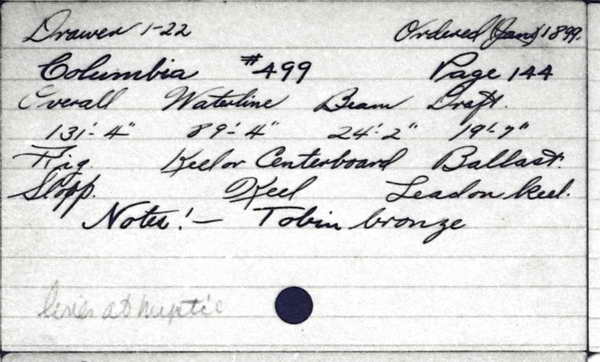 Drawer 1-22 Ordered (Jan) 1899.
Columbia #499 Page 144
Overall Waterline Beam Draft.
131'-4" 89'-4" 24'-2" 19'-7"
Rig Keel or Centerboard Ballast.
Slopp. Keel Lead on keel.
Notes! — Tobin bronze
lines at Mystic